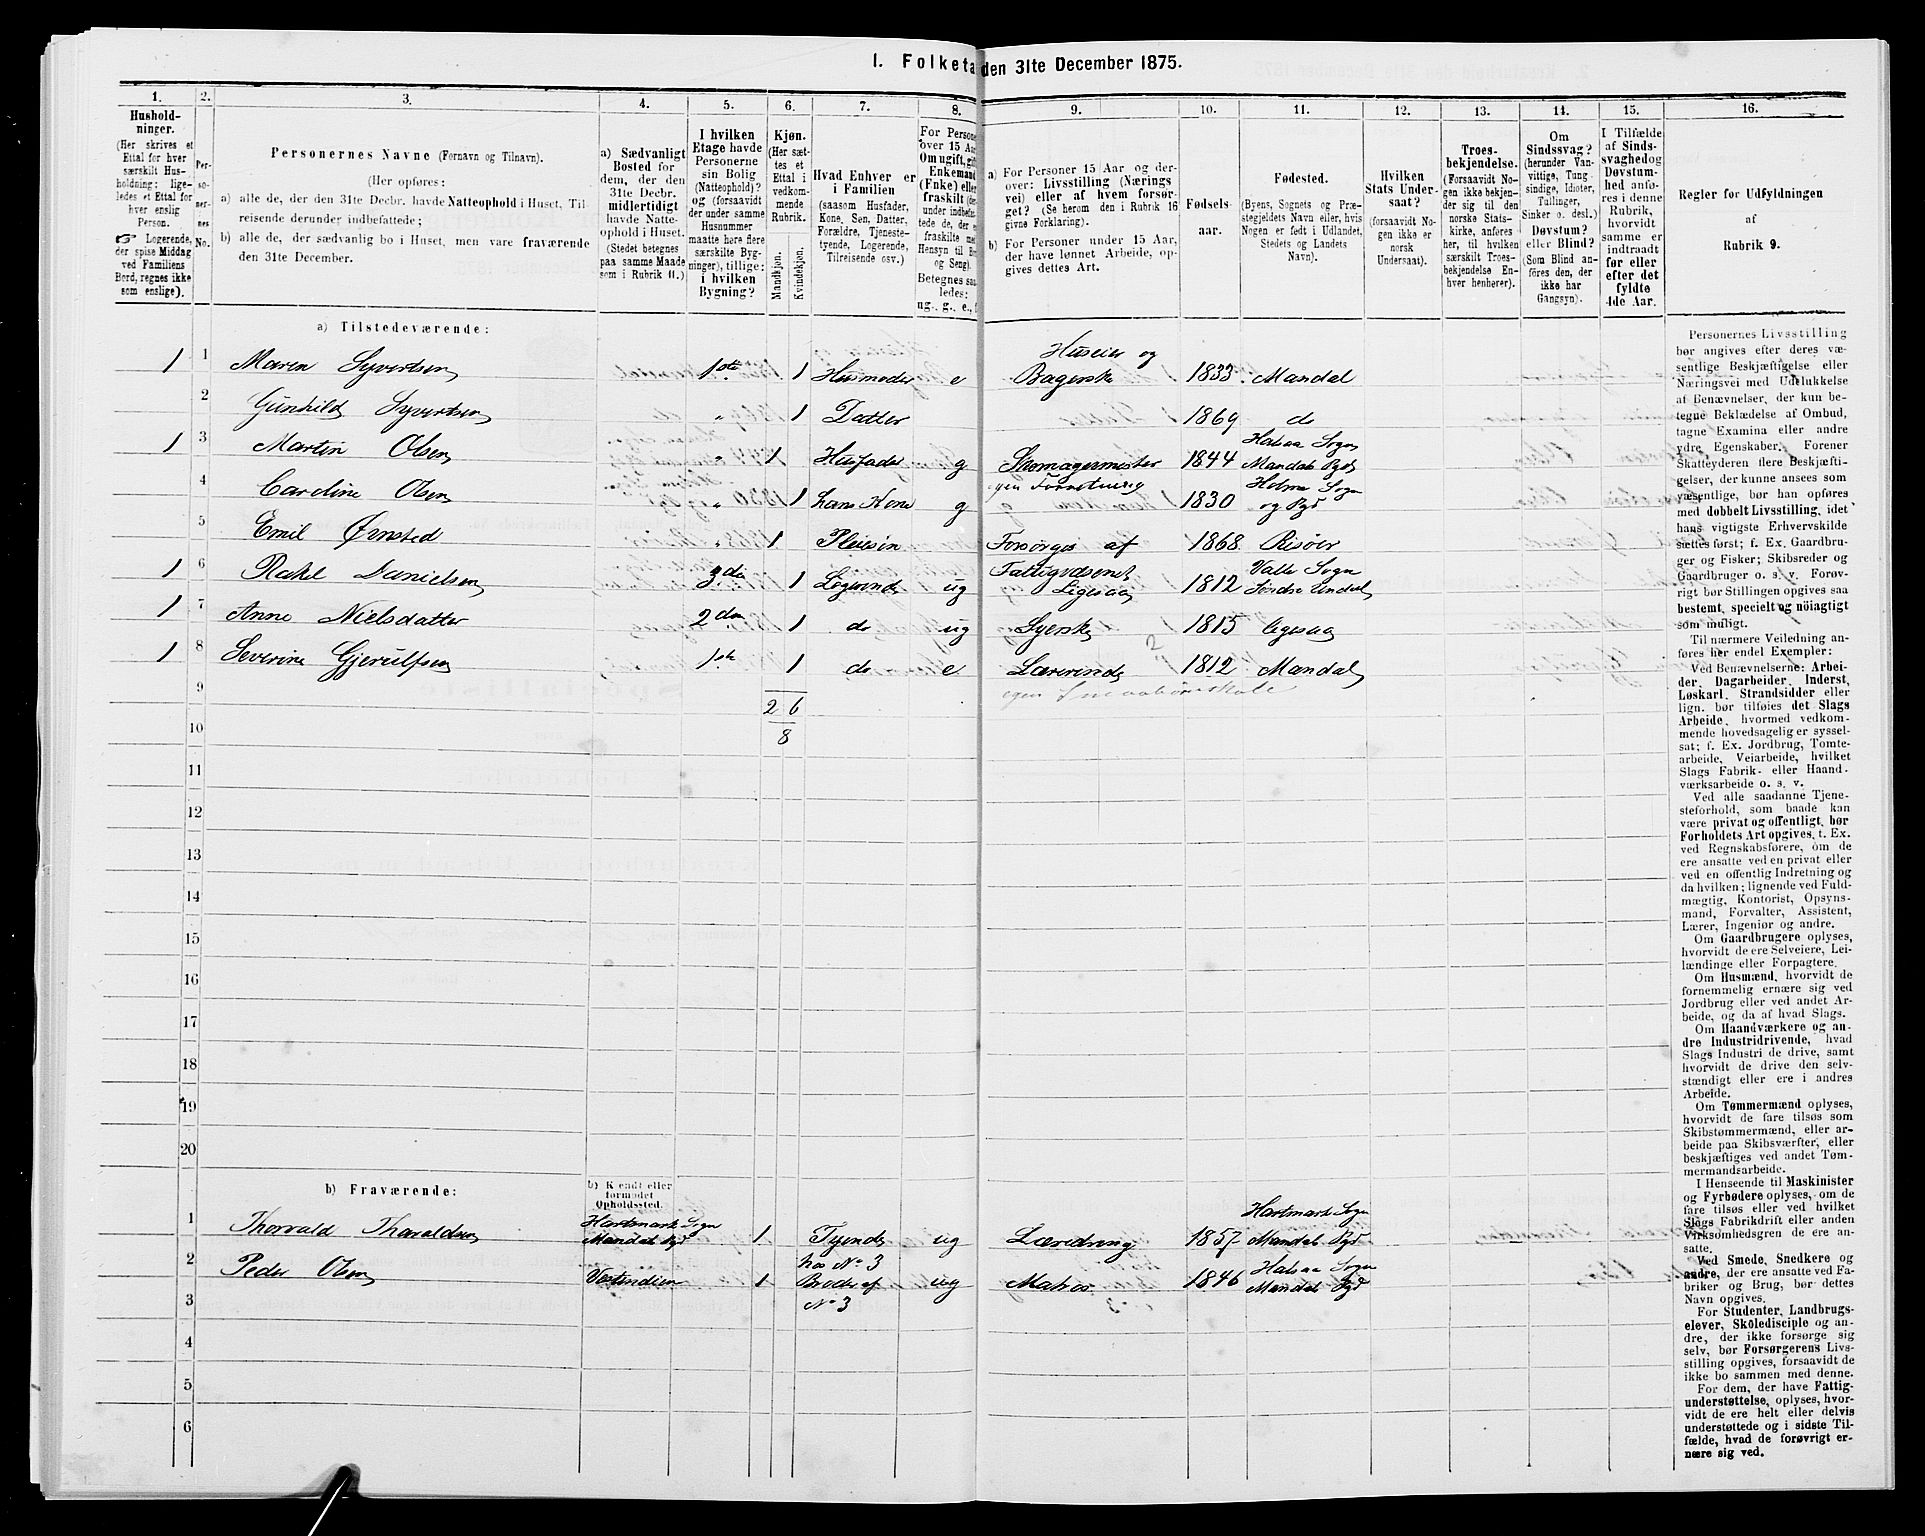 1. Folketa den 31te December 1875.
1. 2. 3. 4. 5. 6. 7. 8. 9. 10. 11. 12. 13. 14. 15. 16.
Hushold-
ninger.
(Her skrives et
Ettal for hver
særskilt Hus-
holdning; lige-
ledes et Ettal for
hver enslig
Person.
☞ Logerende,
der spise Middag
ved Familiens
Bord, regnes ikke
som enslige).
Per-
so-
ner-
nes
No.
Personernes Navne (Fornavn og Tilnavn).
(Her opføres:
a) alle de, der den 31te Decbr. havde Natteophold i Huset, Til-
reisende derunder indbefattede;
b) alle de, der sædvanlig bo i Huset, men vare fraværende
den 31te December.
a) Sædvanligt
Bosted for
dem, der den
31te Decbr.
midlertidigt
havde Natte-
ophold i Huset.
(Stedet betegnes
paa samme Maade
som i Rubrik 11.)
I hvilken
Etage havde
Personerne
sin Bolig
(Natteophold)?
og (forsaavidt
der under samme
Husnummer
maatte høre flere
særskilte Byg-
ninger), tillige:
i hvilken
Bygning?
Kjøn.
(Her sæt-
tes et
Ettal i
vedkom-
mende
Rubrik.
Mandkjøn.
Kvindekjøn.
Hvad Enhver er
i Familien
(saasom Husfader,
Kone, Søn, Datter,
Forældre, Tjeneste-
tyende, Logerende,
Tilreisende osv.)
For Persone
over 15 Aar
Om ugift, gift
Enkemand
(Enke) eller
fraskilt (der
under indbefat-
tede de, der e
fraskilte med
Hensyn til Bo
og Seng).
Betegnes saa
ledes:
ug., g., e.,
a) For Personer 15 Aar og der-
over: Livsstilling (Nærings
vei) eller af hvem forsør-
get? (Se herom den i Rubrik 16
givne Forklaring).
b) For Personer under 15 Aar,
der have lønnet Arbeide, op-
gives dettes Art.
Fødsels-
aar.
Fødested.
(Byens, Sognets og Præ-
stegjeldets Navn eller, hvis
Nogen er født i Udlandet,
Stedets og Landets
Navn).
Hvilken
Stats Under-
saat?
(forsaavidt No-
gen ikke er
norsk
Undersaat).
Troes-
bekjendelse.
(Forsaavidt No-
gen ikke bekjen-
der sig til den
norske Stats-
kirke, anføres
her, til hvilken
særskilt Troes-
bekjendelse En-
hver henhører).
Om
Sindssvag?
(herunder Van-
vittige, Tung
sindige, Idioter,
Tullinger,
Sinker o. desl.)
Døvstum?
eller Blind?
(Som Blind an-
føres den, der
ikke har
Gangsyn).
I Tilfælde
af Sinds-
svaghed og
Døvstum-
hed anfø-
res i denne
Rubrik,
hvorvidt
samme er
indtraadt
før eller
efter det
fyldte
4de Aar.
Regler før Udfyldningen
af
Rubrik 9.
a) Tilstedeværende:
1 1 Maren Syvertsen 1ste 1 Husmoder e Huseier og Bagerske 1833 Mandal
2 Gunhild Syvertsen " 1 Datter 1869 do
1 3 Martin Olsen " 1 Husfader g Skomagermester egen Forretning 1844 Halsaa Sogn Mandals Pgd
4 Caroline Olsen " 1 hans Kone g 1830 Holme Sogn og Pgd
5 Emil Ørnsted " 1 Pleiesøn Forsørges af Fattigvæsenet 1868 Risøer
1 6 Rakel Danielsen 3die 1 Logerende ug Ligesaa 1812 Valle Sogn Søndre Undal
1 7 Anne Nielsdatter 2den 1 do ug Syerske 1815 ligesaa
1 8 Severine Gjerulfsen 1ste 1 do e Lærerinde 1812 Mandal
egen Smaabørnskole
9
2 6
10
8
11
12
13
14
15
16
17
18
19
20
b) Fraværende:
b) Kjendt eller
formodet
Opholdssted.
1 Thorvald Tharaldsen Hartmark Sogn Mandals Pgd 1 Tyende hos No 3 ug Læredreng 1857 Hartmark Sogn Mandals Pgd
2 Peder Olsen Vestindien 1 Broder af No 3 ug Matros 1846 Halsaa Sogn Mandals Pgd
3
4
5
6
Personernes Livsstilling
bør angives efter deres væ-
sentlige Beskjæftigelse eller
Næringsvei med Udelukkelse
af Benævnelser, der kun be-
tegne Beklædelse af Ombud,
tagne Examina eller andre
ydre Egenskaber. Forener
Skatteyderen flere Beskjæfti-
gelser, der kunne ansees som
væsentlige, bør han opføres
med dobbelt Livsstilling, idet
hans vigtigste Erhvervskilde
sættes først; f. Ex. Gaardbru-
ger og Fisker; Skibsreder og
Gaardbruger o. s. v. Forøv-
rigt bør Stillingen opgives saa
bestemt, specielt og nøiagtigt
som muligt.
Til nærmere Veiledning an-
føres her endel Exempler:
Ved Benævnelserne: Arbei-
der, Dagarbeider, Inderst,
Løskarl, Strandsidder eller
lign. bør tilføies det Slags
Arbeide, hvormed vedkom-
mende hovedsagelig er syssel-
sat; f. Ex. Jordbrug, Tomte-
arbeide, Veiarbeide, hvilket
Slags Fabrik- eller Haand-
værksarbeide o. s. v.
Ved alle saadanne Tjene-
steforhold, som baade kan
være privat og offentligt, bør
Forholdets Art opgives, t. Ex.
ved Regnskabsførere, om de
ere ansatte ved en privat eller
ved en offentlig Indretning og
da hvilken; lignende ved Fuld-
mægtig, Kontorist, Opsyns-
mand, Forvalter, Assistent,
Lærer, Ingeniør og andre.
Om Gaardbrugere oplyses,
hvorvidt de ere Selveiere, Lei-
lændinge eller Forpagtere.
Om Husmænd, hvorvidt de
fornemmelig ernære sig ved
Jordbrug eller ved andet Ar-
beide, og da af hvad Slags.
Om Haandværkere og an-
dre Industridrivende, hvad
Slags Industri de drive, samt
hvorvidt de drive den selv-
stændigt eller ere i andres
Arbeide.
Om Tømmermænd oplyses,
hvorvidt de fare tilsøs som
Skibstømmermænd, eller ar-
beide paa Skibsværfter, eller
beskjæftiges ved andet Tøm-
mermandsarbeide.
I Henseende til Maskinister
og Fyrbødere oplyses, om de
fare tilsøs eller ved hvilket
Slags Fabrikdrift eller anden
Virksomhedsgren de ere an-
satte.
Ved Smede, Snedkere og
andre, der ere ansatte ved Fa-
briker og Brug, bør dettes
Navn opgives.
For Studenter, Landbrugs-
elever, Skoledisciple og an-
dre, der ikke forsørge sig
selv, bør Forsørgerens Livs-
stilling opgives, forsaavidt de
ikke bo sammen med denne.
For dem, der have Fattig-
understøttelse, oplyses, hvor-
vidt de ere helt eller delvis
understøttede og i sidste Til-
fælde, hvad de forøvrigt er-
nære sig ved.